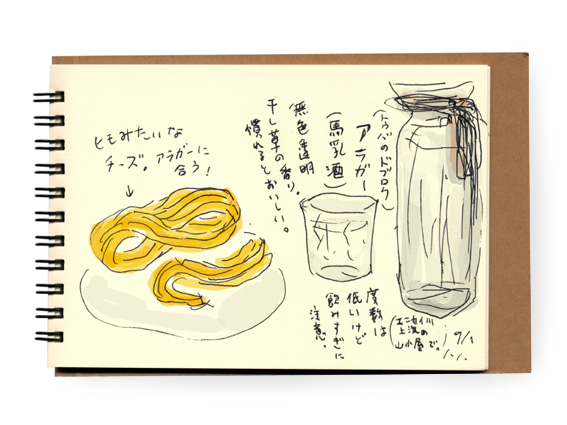 (トゥバのドブロク)
アラガー
(馬乳酒)
無色透明
干し草の香り。
慣れるとおいしい。
度数は
低いけど
飲みすぎに
注意。
ひもみたいな
チーズ。アラガーに
合う!
山小屋で。